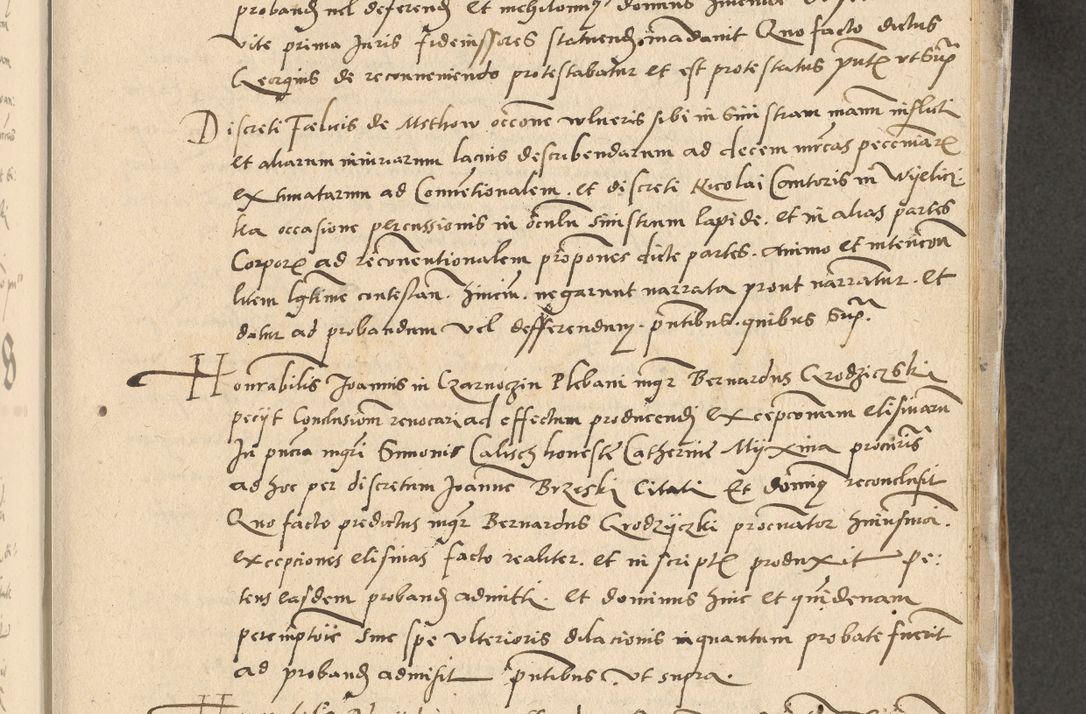 proband vel deferend Et nichilominq dominus
vite prima Iuris fideiussores statuend mandavit Quo facto dictus
Georgius de reconveniendo protestabatur et est protestatus pntẽ ut Supª
Discreti Foelicis de Msthow occone vulneris sibi in Sinistram manũ inflicti
et aliarum iniuriarum lacius describendarum ad decem mrcas peccuniarẽ
extimatarum ad Conventionalem . et discreti Nicolai Cantoris in Wijslici
tia occasione percussionis in oculũ sinistrum lapide . et in alias partes
Corporẽ ad reconventionalem proponeñ dicte partes . animo et intencõn
litem lgtime contestan . hincin . negarunt narrata prout narrantur . Et
datur ad probandum vel defferendum . pntibus . quibus Supª.
Honrabilis Joannis in Czarnoczin Plebani mgr Bernardus Grodziczski
peciit Conclusionem revocari ad effectum producendi excepcionum elisivarũ
In pncia mgri Simonis Calisch honeste Catherine Mijxina procuris
ad hoc per discretum Joannẽ Brzeski Citati Et dominq reconclusit
Quo facto predictus mgr Bernardus Grodzijczki procurator huiusmõi .
excepciones elisivas facto realiter . et in scriptẽ produxit pe:
tens easdem proband admitti . et dominus hinc et quindenam
peremptoriẽ sine spe ulterioris dilacionis inquantum probate fuerit
ad proband admisit pntibus . ut supra .